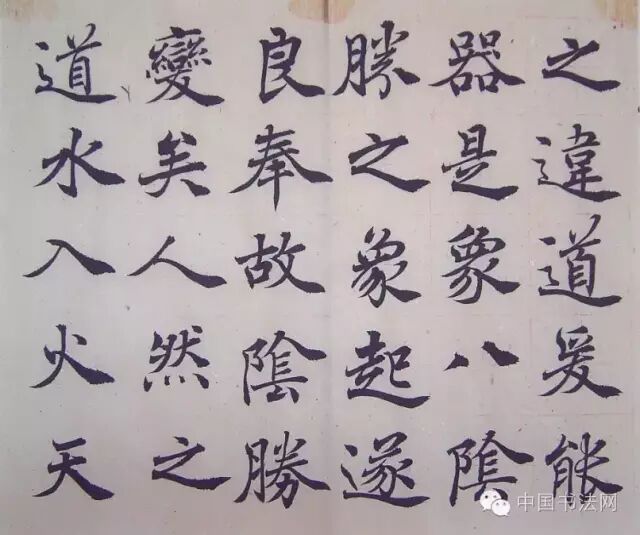 之違道爰能
器是象八陰
勝之象起遂
良奉故陰勝
變矣人然之
道水入火天
中国书法网